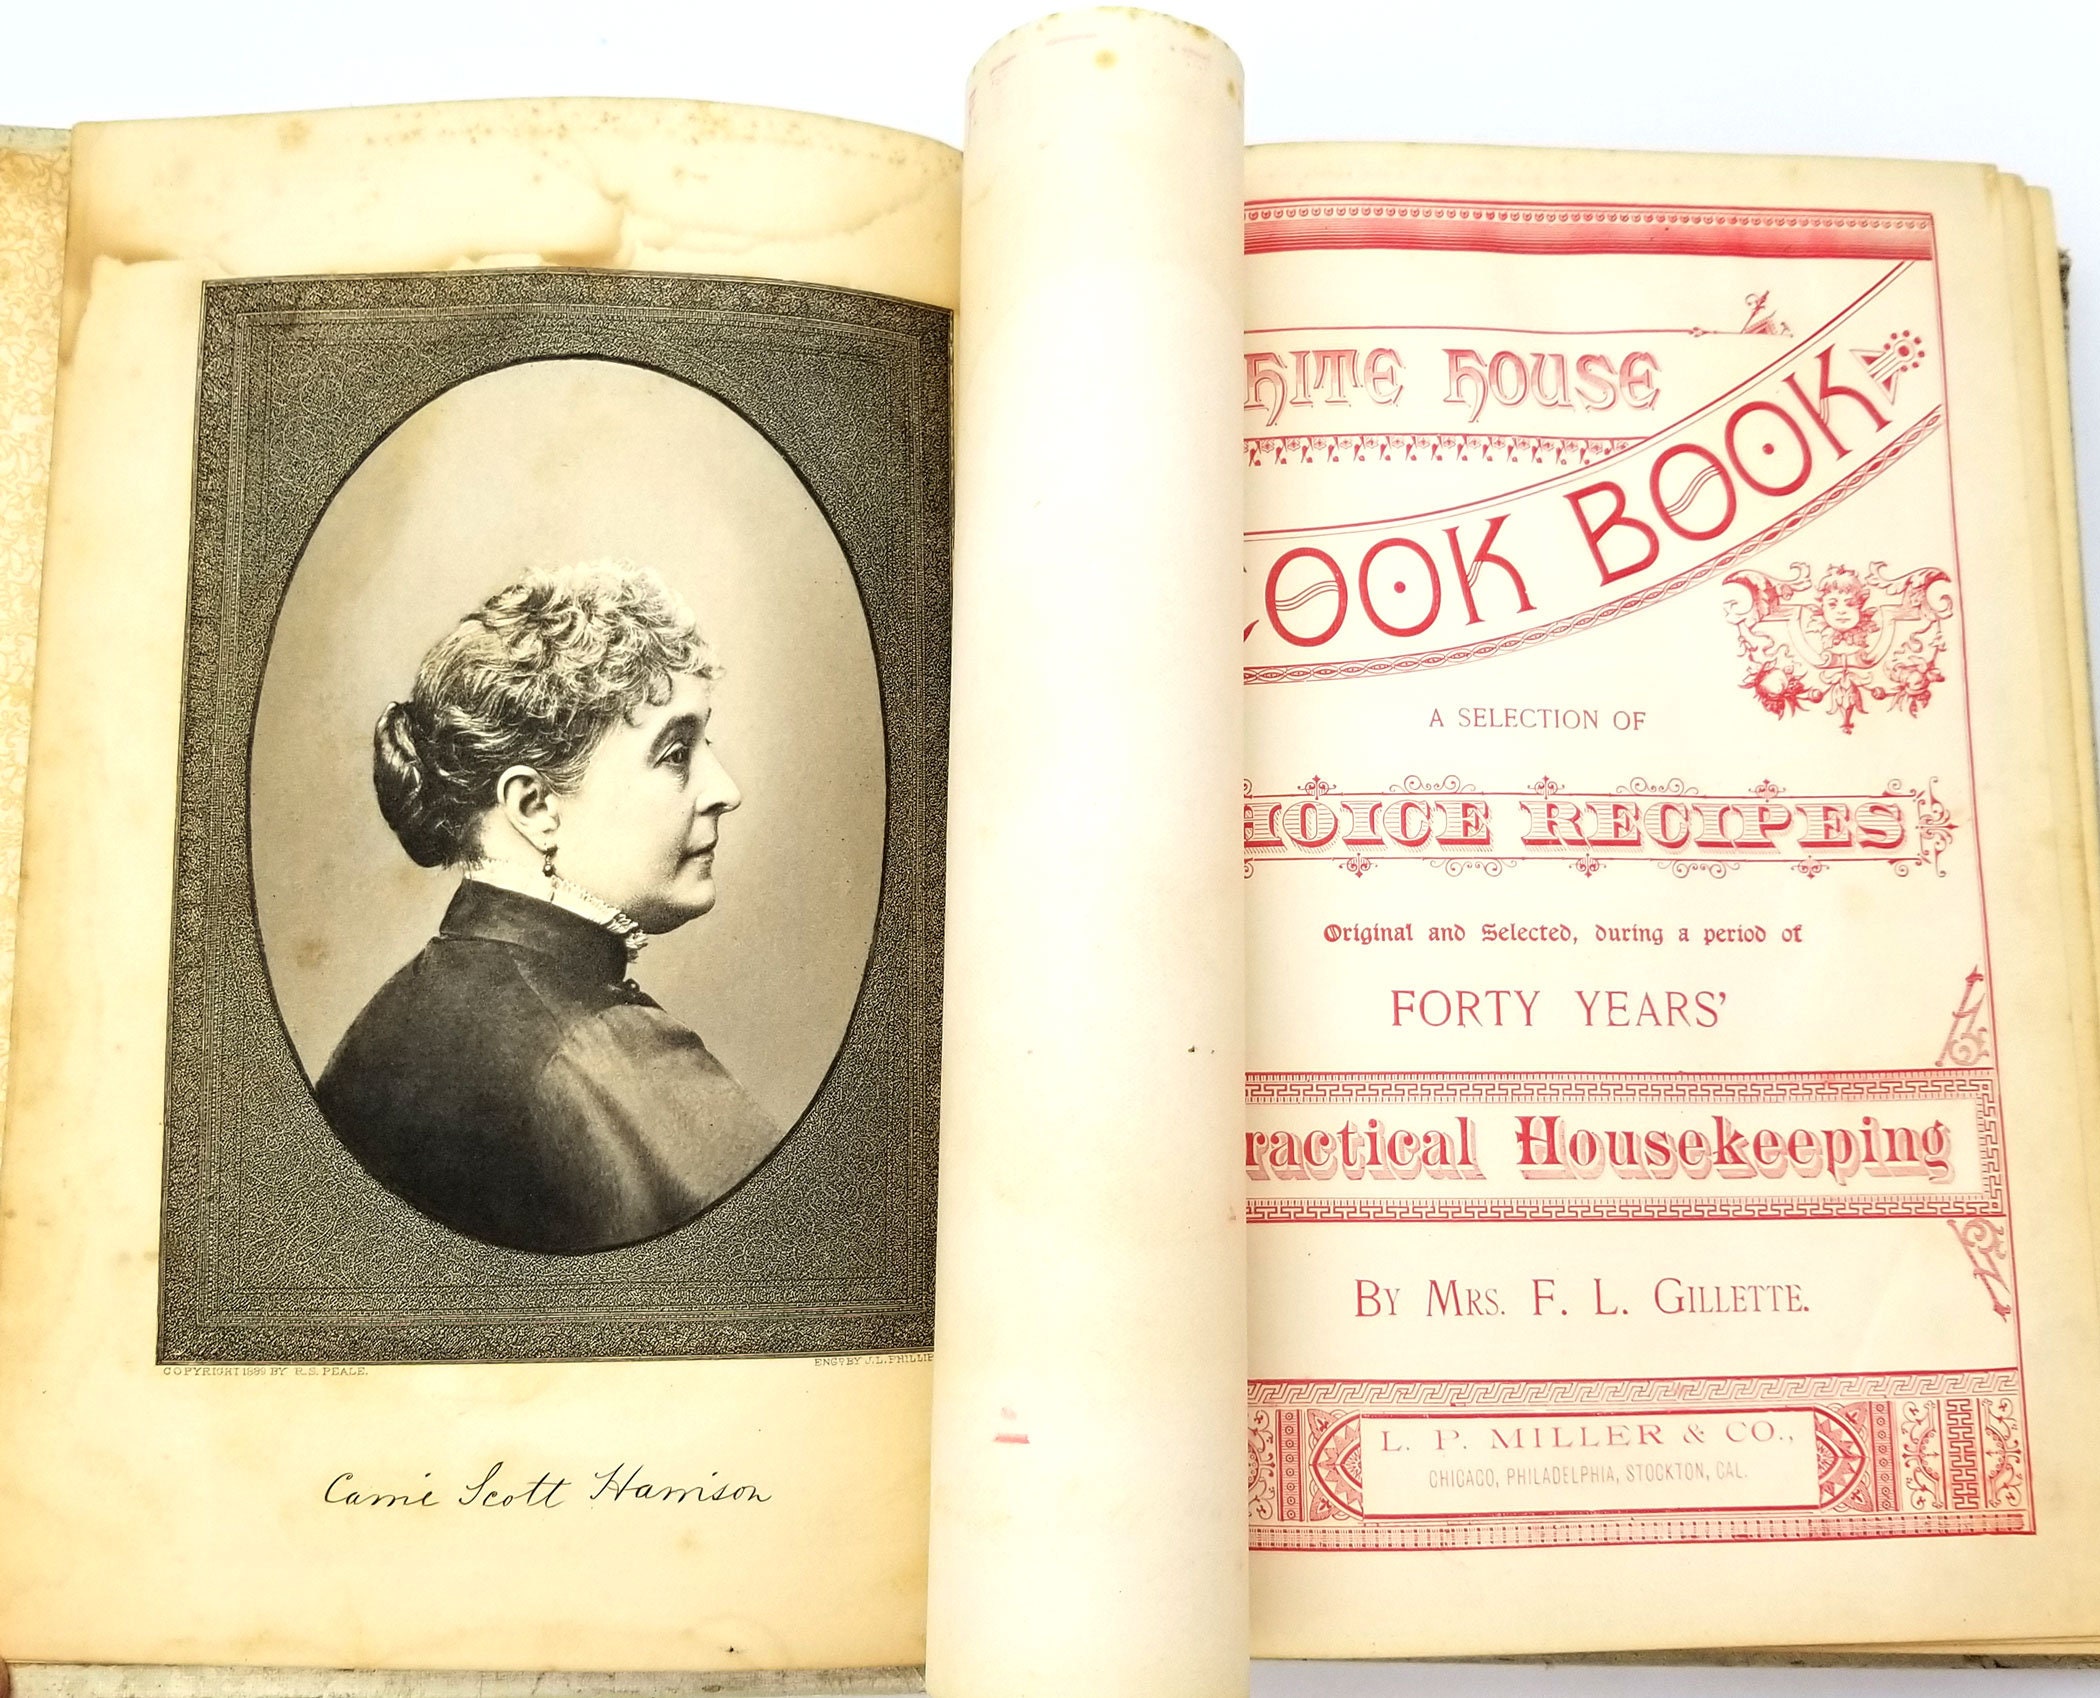 COPYRIGHT 1889 BY R.S. PEALE.
ENG'D BY J.L. PHILLIP
Carrie Scott Harrison
HITE HOUSE
COOK BOOK
A SELECTION OF
HOICE RECIPES
Original and Selected, during a period of
FORTY YEARS'
ractical Housekeeping
BY MRS. F. L. GILLETTE.
L. P. MILLER & CO.,
CHICAGO, PHILADELPHIA, STOCKTON, CAL.